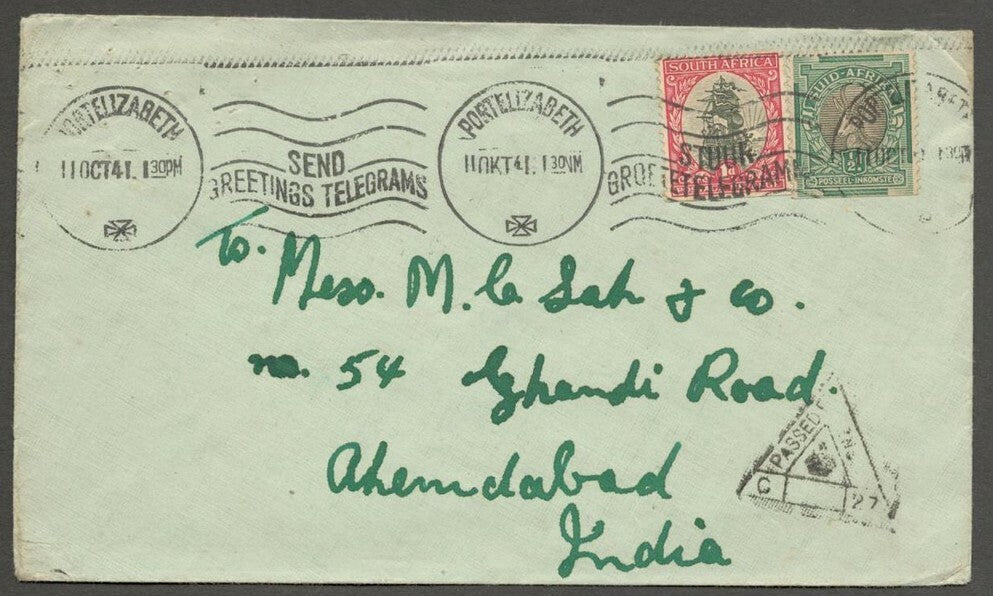 PORT ELIZABETH
11 OCT 41. 1 30PM
SEND
GREETINGS TELEGRAMS
PORT ELIZABETH
11 OKT 41. 1 30NM
STUUR
GROETETELEGRAMME
SOUTH AFRICA
1d
SUID-AFRIKA
½d
POSSEEL-INKOMSTE
To.
Mess. M. Ca Sah & Co.
no. 54 Ghandi Road.
Ahemdabad
India
PASSED
C
27